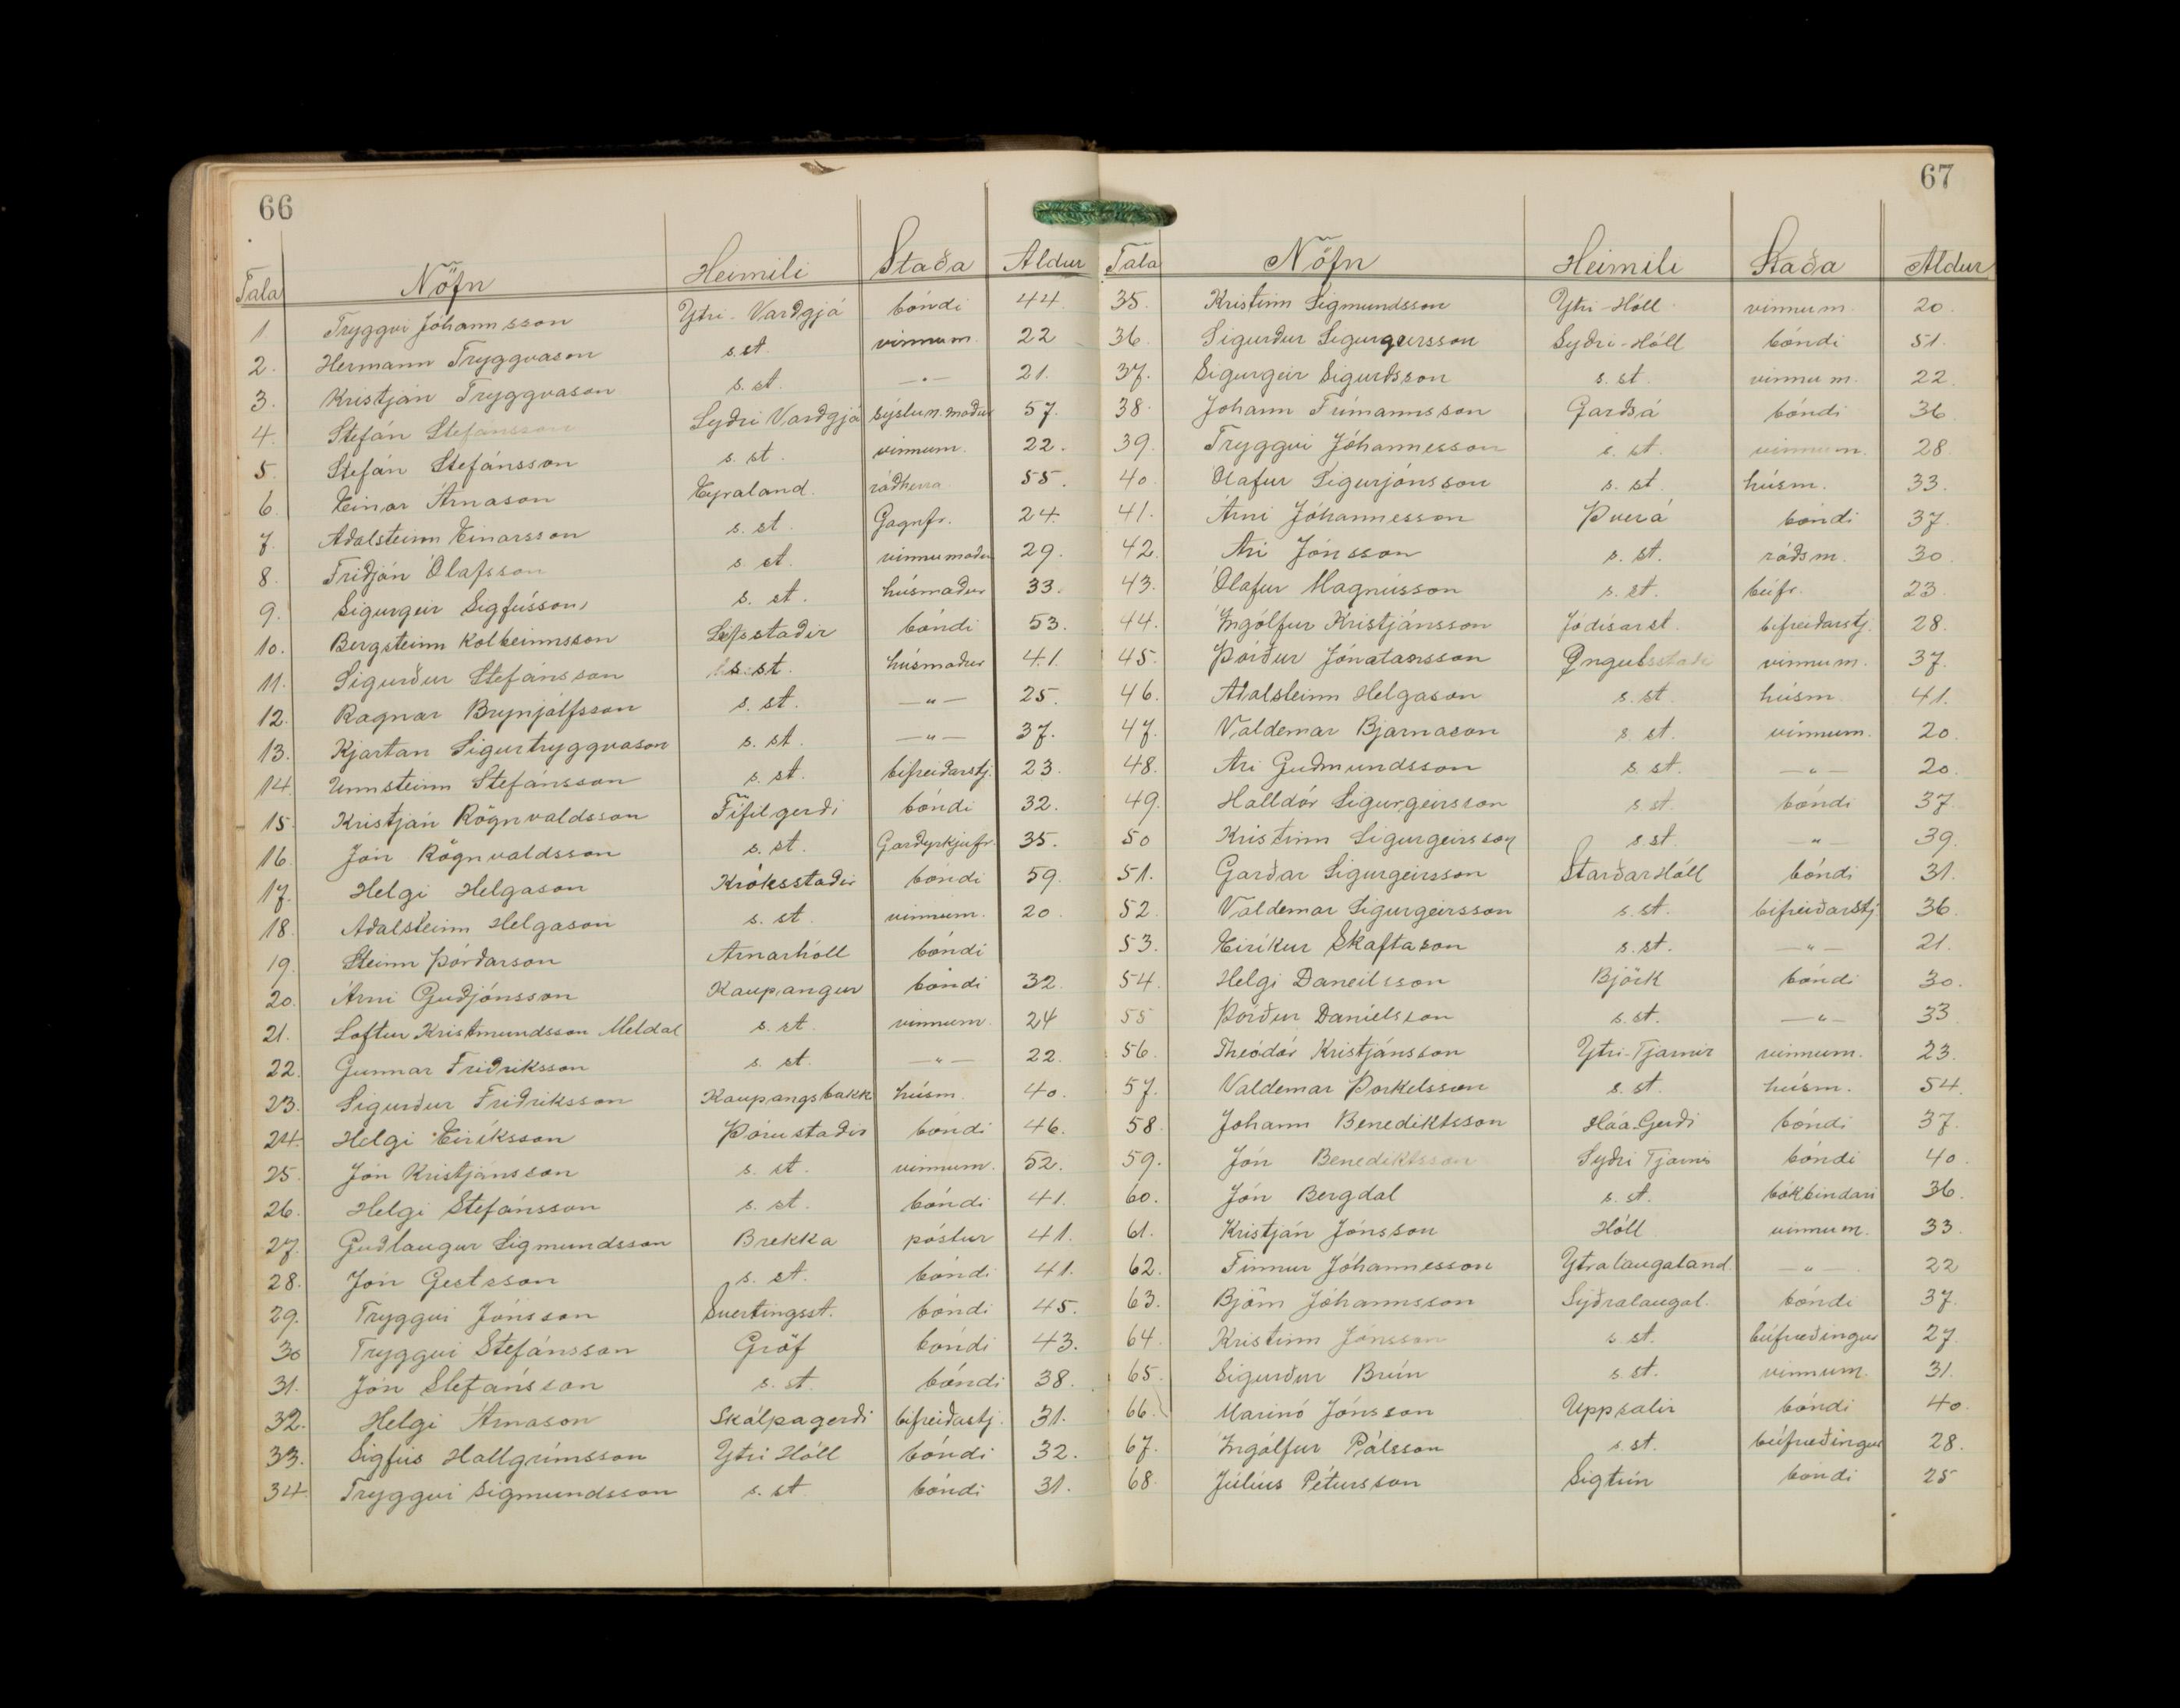 66
Tala Nöfn Heimili Staða Aldur
1. Tryggvi Jóhannsson Ytri-Varðgjá bóndi 44.
2. Hermann Tryggvason s. st. vinnum. 22
3. Kristján Tryggvason s. st. —〃— 21.
4. Stefán Stefánsson Syðri Varðgjá sýslun.maður 57.
5. Stefán Stefánsson s. st. vinnum. 22.
6. Einar Árnason Eyraland. ráðherra 55.
7. Aðalsteinn Einarsson s. st. Gagnfr. 24.
8. Friðjón Ólafsson s. st. vinnumaður 29.
9. Sigurgeir Sigfússon s. st. húsmaður 33.
10. Bergsteinn Kolbeinnsson Leifsstaðir bóndi 53.
11. Sigurður Stefánsson s. st. húsmaður 41.
12. Ragnar Brynjólfsson s. st. —〃— 25.
13. Kjartan Sigurtryggvason s. st. —〃— 37.
14. Unnsteinn Stefánsson s. st. bifreiðarstj. 23.
15. Kristján Rögnvaldsson Fífilgerði bóndi 32.
16. Jón Rögnvaldsson s. st. Garðyrkjufr. 35.
17. Helgi Helgason Króksstaðir bóndi 59.
18. Aðalsteinn Helgason s. st. vinnum. 20.
19. Steinn Þórðarson Arnarhóll bóndi
20. Árni Guðjónsson Kaupangur bóndi 32.
21. Loftur Kristmundsson Meldal s. st. vinnum. 24
22. Gunnar Friðriksson s. st. —〃— 22.
23. Sigurður Friðriksson Kaupangsbakk húsm. 40.
24. Helgi Eiríksson Þórustaðir bóndi 46.
25. Jón Kristjánsson s. st. vinnum. 52.
26. Helgi Stefánsson s. st. bóndi 41.
27. Guðlaugur Sigmundsson Brekka póstur 41.
28. Jón Gestsson s. st. bóndi 41.
29. Tryggvi Jónsson Svertingsst. bóndi 45.
30 Tryggvi Stefánsson Gröf bóndi 43.
31. Jón Stefánsson s. st. bóndi 38.
32. Helgi Árnason Skálpagerði bifreiðastj. 31.
33. Sigfús Hallgrímsson Ytri Hóll bóndi 32.
34. Tryggvi Sigmundsson s. st bóndi 31.
67
Tala Nöfn Heimili Staða Aldur
35. Kristinn Sigmundsson Ytri-Hóll vinnum. 20.
36. Sigurður Sigurgeirsson Syðri-Hóll bóndi 51.
37. Sigurgeir Sigurðsson s. st. vinnum. 22.
38. Johann Frímannsson Garðsá bóndi 36.
39. Tryggvi Jóhannesson s. st. vinnum. 28.
40. Ólafur Sigurjónsson s. st. húsm. 33.
41. Árni Jóhannesson Þverá bóndi 37.
42. Ari Jónsson s. st. ráðsm. 30.
43. Ólafur Magnússon s. st. búfr. 23.
44. Ingólfur Kristjánsson Jódísarst. bifreiðarstj. 28.
45. Þórður Jónatansson Öngulsstaði vinnum. 37.
46. Aðalsteinn Helgason s. st. húsm. 41.
47. Valdemar Bjarnason s. st. vinnum. 20.
48. Ari Guðmundsson s. st. —〃— 20.
49. Halldór Sigurgeirsson s. st. bóndi 37.
50 Kristinn Sigurgeirsson s. st. —〃— 39.
51. Garðar Sigurgeirsson StaðarHóll bóndi 31.
52. Valdemar Sigurgeirsson s. st. bifreiðarstj. 36.
53. Eiríkur Skaftason s. st. —〃— 21.
54. Helgi Daneilsson Björk bóndi 30.
55 Þórður Daníelsson s. st. —〃— 33
56. Theódór Kristjánsson Ytri-Tjarnir vinnum. 23.
57. Valdemar Þorkelsson s. st. húsm. 54.
58. Johann Benediktsson Háa-Gerði bóndi 37.
59. Jón Benediktsson Syðri Tjarnir bóndi 40.
60. Jón Bergdal s. st. bókbindari 36.
61. Kristján Jónsson Hóll vinnum. 33.
62. Finnur Jóhannesson Ytralaugaland. —〃— 22
63. Björn Jóhannsson Syðralaugal. bóndi 37.
64. Kristinn Jónsson s. st. búfræðingur 27.
65. Sigurður Brún s. st. vinnum. 31.
66. Marinó Jónsson Uppsalir bóndi 40.
67. Ingólfur Pálsson s. st. búfræðingur 28.
68. Júlíus Pétursson Sigtún bóndi 25